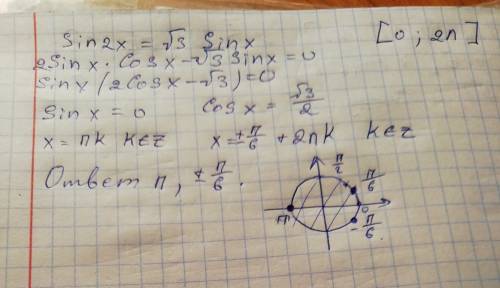 Sin2x = √3 Sinx [0; 2π]
2Sinx · Cosx - √3 Sinx = 0
Sinx (2Cosx - √3) = 0
Sinx = 0 Cosx = √3/2
x = πk k∈z x = ±π/6 + 2πk k∈z
Ответ π, ±π/6.
π/2
π/6
π
0
-π/6